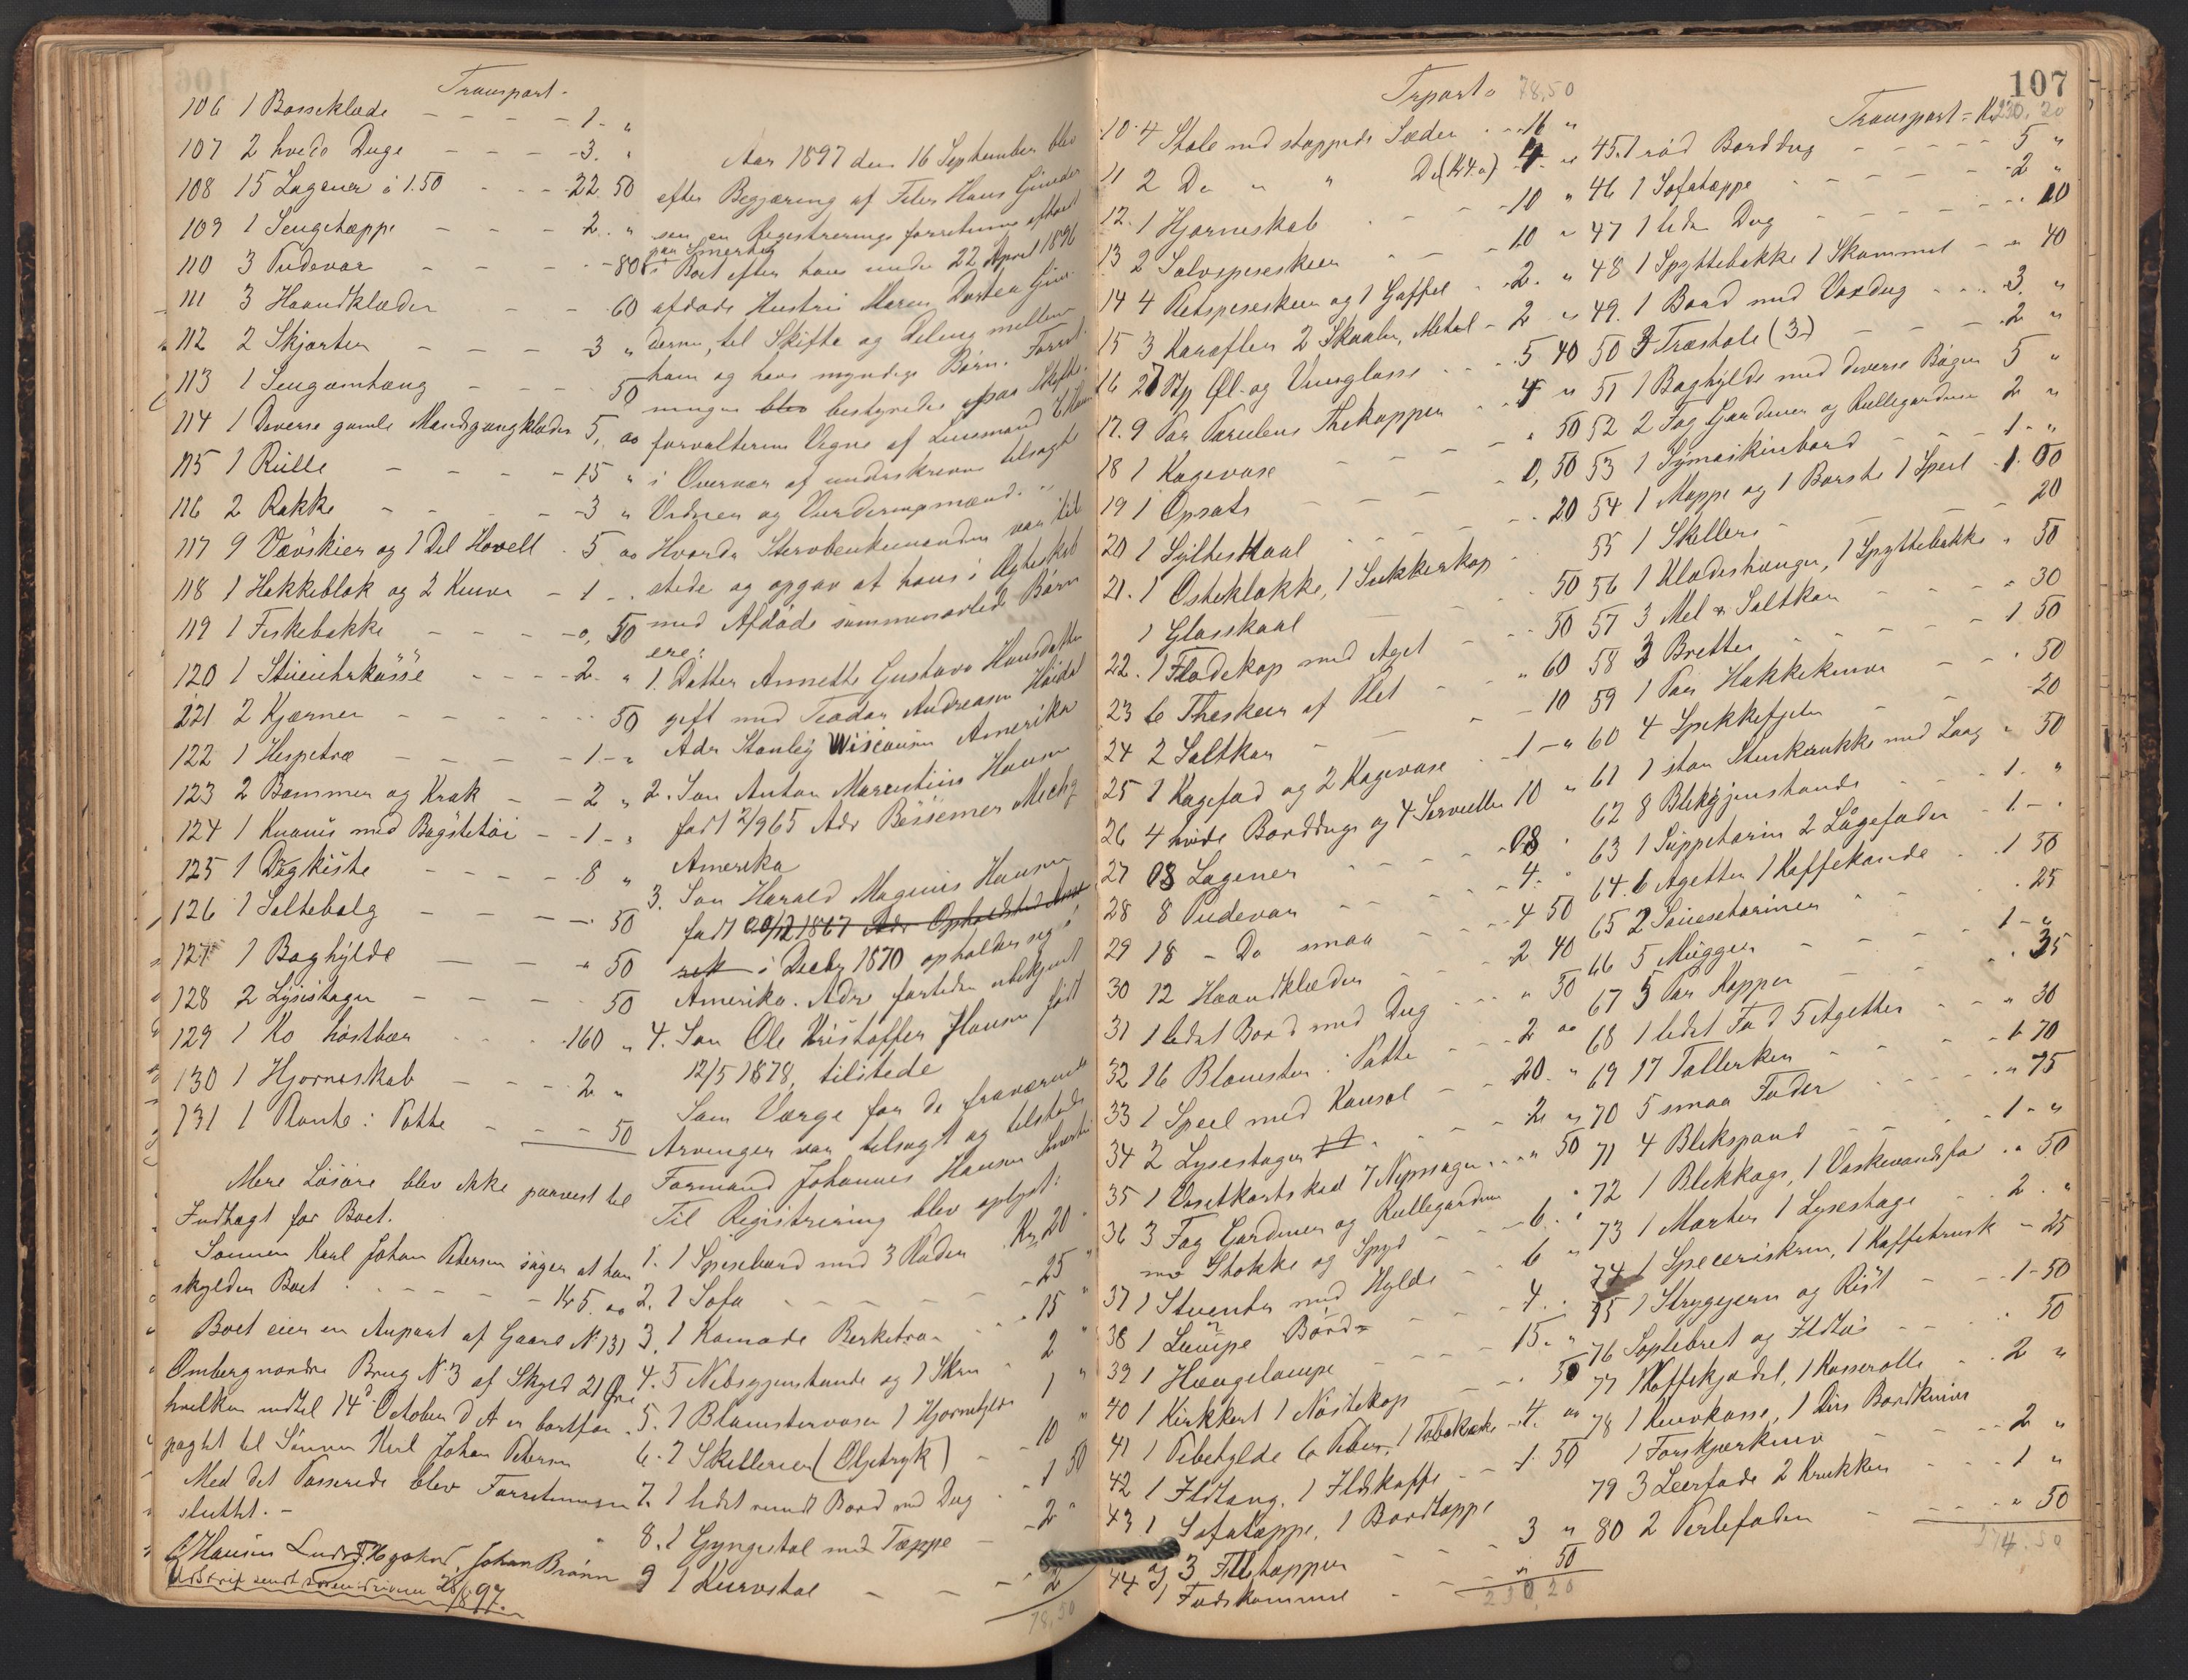 Transport.
106 1 Bosseklæde - - - - 1. "
107 2 hvide Duge - - - 3. "
108 15 Lagener á 1.50 - - - 22 50
109 1 Sengetæppe - - - 2. "
110 3 Pudevar - - - - 80
111 3 Haandklæder - - 60
112 2 Skjorter - - - - 3 "
113 1 Sengeomhæng - - - 50
114 1 Diverse gamle Mandsgangklæder 5, 00
115 1 Rulle - - - - 15 "
116 2 Rokke - - - - 3 "
117 9 Vævskier og 1 Del Hovell . 5 00
118 1 Hakkeblok og 2 Knive - 1 - .
119 1 Fiskebakke - - - - 0, 50
120 1 - - - 2. "
121 2 Kjærner - - - - - 50
122 1 Hespetræ - - - - 1 - "
123 2 Bommer og Krak - - 2 "
124 1 med Bagstetøi - - 1 - "
125 1 Dragkiste - - - - 8 "
126 1 Saltebalg - - - - 50
127 1 Boghylde - - - " 50
128 2 Lysestager - - - - 50
129 1 Ko høstbær - - - 160 "
130 1 Hjørneskab - - - 2 "
131 1 Plante i Potte - - - 50
Mere Løsøre blev ikke paavist til
Indtægt for Boet.
Sønnen Karl Johan Petersen siger at han
skylder Boet - - - - - Kr 5. 00
Boet eier en Anpart af Gaard No 131
Omberg nordre Brug No 3 af Skyld 21 Øre
hvilken indtil 14d October d A er bortfor-
pagtet til Sønnen Karl Johan Petersen
Med det Passerede blev Forretningen
sluttet. -
O Hansen Johan Brønn
Udskrift sendt Sorenskriveren 28/8 97.
Aar 1897 den 16 September blev
efter Begjæring af Hans Gunder
sen en Registrerings forretning afholdt
paa Smertu
i Boet efter hans under 22 April 1896
afdøde Hustru Maren Dortea Gun-
dersen, til Skifte og Deling mellem
ham og hans myndige Børn. Forret-
ningen blev bestyredes paa Skifte-
forvalterens Vegne af Lensmand
i Overvær af underskrevne tilsagte
Vidner og Vurderingsmænd. -
Hvorda Stervboenkemanden var til
stede og opgav at hans i Ægteskab
med Afdøde sammenavlede Børn
ere:
1. Datter Annette Gustava Hansdatter
gift med Teodor Andreasen Høidal
Adr Stanley Wisconsin Amerika
2. Søn Anton Marentius Hansen
født 2/9 65 Adr Bessemer Mechg
Amerika
3. Søn Harald Magnus Hansen
født 20/12 1867 Adr Opholdsted
i Decbr 1870 opholder sig i
Amerika. Adr fortiden ubekjent
4. Søn Ole Kristoffer Hansen født
12/5 1878, tilstede
Som Værge for de fraværende
Arvinger var tilsagt og tilstede
Formand Johannes Hansen
Til Registrering blev oplyst:
1. 1 Spisebord med 3 Plader Kr 20 "
2. 1 Sofa - - - - - 25 "
3. 1 Komode Berketræ - - 15 "
4. 5 Nibsgjenstande og 1 Skrin - 2 "
5. 1 Blomstervase 1 Hjørnehylde 1 "
6. 7 Skillerier (Oljetryk) - - 10 "
7. 1 lidet rundt Bord med Dug . 1 50
8. 1 Gyngestol med Tæppe - - 2 "
9 1 Kurvstol - - - 2
78,50
107
Trport. 78,50
10. 4 Stole med stoppede Sæder . . . 16 "
11 2 Do " " Do (Kr 4.00) 4. "
12. 1 Hjørneskab - - - - 10 "
13 2 Sølvspiseskeer - - - 10 "
14 4 Pletspiseskeer og 1 Gaffel . 2. "
15 3 Karafler 2 Skaaler, Metal - 2 "
16 27 Stp Øl- og Vinglasse . . . 5 40
17. 9 Par Porcelens Thekopper . . 4 "
18 1 Kagevase - - - - " 50
19 1 Opsats - - - - 0, 50
20 1 Sylteskaal - - - - . 20
21. 1 Osteklokke, 1 Sukkerkop
1 Glasskaal - - - . 50
22. 1 Flødekop med Aget - - . 50
23 6 Theskeer af Plet - - " 60
24 2 Saltkar - - - - 10
25 1 Kagefad og 2 Kagevase . . 1 - "
26 4 hvide Bordduge og 4 Servietter 10 "
27 08 Lagener - - - - 08 "
28 8 Pudevar - - - - 4. "
29 18 - Do smaa - - - 4 50
30 12 Haandklæder - - - 2 40
31 1 lidet Bord med Dug - - . " 50
32 16 Blomster i Potte - - 2 00
33 1 Speil med Konsol - - 20. "
34 2 Lysestager - - - 2 "
35 1 Visitkortskaal 7 Nipssager . . . " 50
36 3 Fag Gardiner og Rullegardiner
med Stokke og Spyd - - 6. "
37 1 Stueuhr med Hylde - - 6 "
38 1 Lampe Bord- - - 4. "
39 1 Hængelampe - - - 15. "
40 1 Kirkkert 1 Nøstekop - - . 50
41 1 Pibehylde 6 Piber, 1 Tobakæske - 4. 00
42 1 Ildtang, 1 Ildskaffe - - 1 50
43 1 Sofatæppe, 1 Bordtæppe
og 3 Filttæpper - - - 3 "
44 1 Fodskammel - - - " 50
230,20
Transport = Kr 230,20
45. 1 rød Borddug - - - - - 5 "
46 1 Sofatæppe - - - - - 2 "
47 1 liden Dug - - - - - . 20
48 1 Spyttebakke 1 Skammel - - " 40
49. 1 Bord med Voxdug - - . 3. "
50 3 Træstole (3-) - - - . 2 "
51 1 Boghylde med diverse Bøger 5 "
52 2 Fag Gardiner og Rullegardiner 2 "
53 1 Symaskinbord - - - 1. "
54 1 Moppe og 1 Børste 1 Speil . 1. 00
55 1 Skilleri - - - - 20
56 1 Klædeshænger, 1 Spyttebakke . 50
57 3 Mel & Saltkar - - - . 30
58 3 Bretter - - - - 1 50
59 1 Par Hakkekniver - - . 50
60 4 Spekkefjeler - - - 20
61 1 stor Stenkrukke med Laag " 50
62 8 Blikgjenstande - - - 1. "
63 1 Suppeterrin 2 Lågefader - 1 - .
64. 6 Agetter 1 Kaffekande . . 1 50
65 2 Sauseterriner - - - . 25
66 5 Mugger - - - - 1 - "
67 5 Par Kopper - - - . 35
68 1 lidet Fad 5 Agetter - - " 30
69 17 Tallerken - - - - 1 70
70 5 smaa Fader - - - . " 75
71 4 Blikspand - - - - 1 - "
72 1 Blikkage, 1 Vaskevandsfad . " 50
73 1 Morter 1 Lysestage - - 2. "
74 1 Speceriskrin, 1 Kaffebrusk - 25
75 1 Strygejern og Rist - - 1 - 50
76 Soplebret og Ildtøi - - - . 50
77 1 Kaffekjedel, 1 Kasserolle . . 2 "
78 1 Knivkasse, 1 Dus Bordkniver
1 Forskjærkniv - - - 2 "
79 3 Leerfade 2 Krukker - - - 1 "
80 2 Perlefader - - - - " 50
274.50